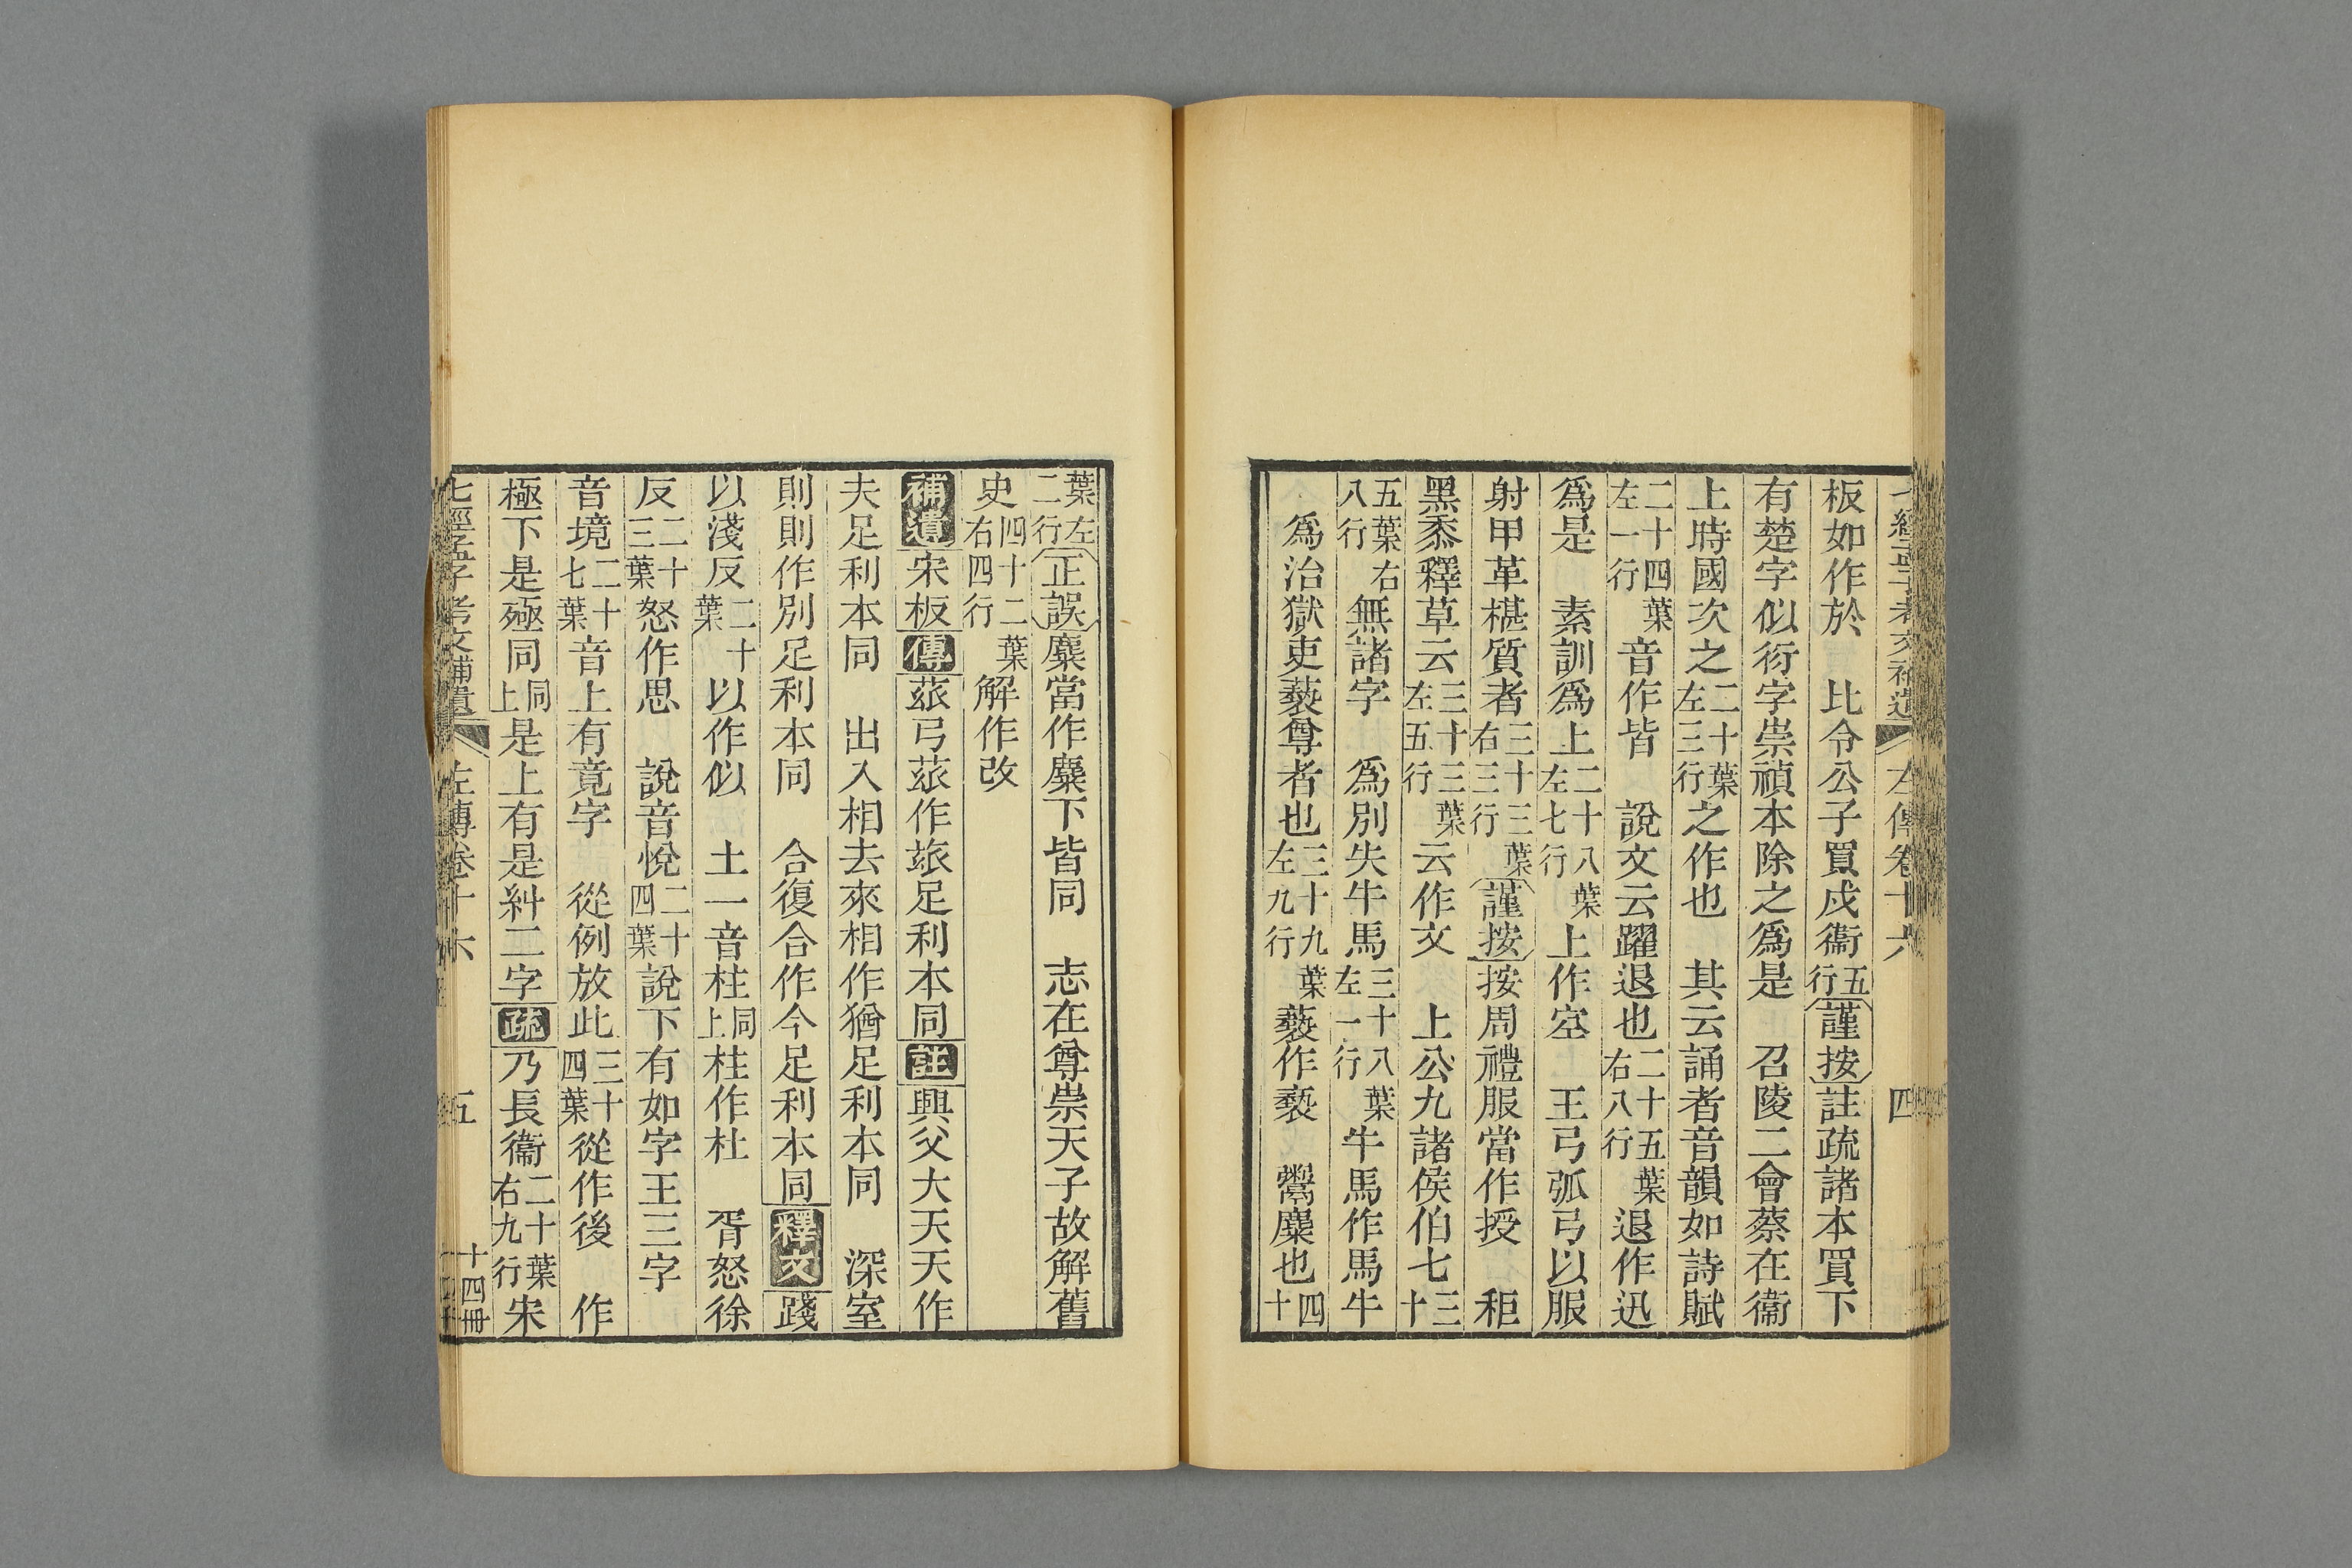 七經孟子考文補遺 左傳卷十六 四
板如作於 比令公子買戍衞五行謹按註疏諸本買下
有楚字似衍字崇禎本除之爲是 召陵二會蔡在衞
上時國次之二十葉左三行之作也 其云誦者音韻如詩賦
二十四葉左一行音作皆 說文云躍退也二十五葉右八行退作迅
爲是 素訓爲上二十八葉左七行上作空 王弓弧弓以服
射甲革椹質者三十三葉右三行謹按按周禮服當作授 秬
黑黍釋草云三十三葉左五行云作文 上公九諸侯伯七三十
五葉右八行無諸字 爲別失牛馬三十八葉左一行牛馬作馬牛
爲治獄吏䙝尊者也三十九葉左九行䙝作褻 鬻麋也四十
葉左二行正誤麋當作麋下皆同 志在尊崇天子故解舊
史四十二葉右四行解作改
補遺宋板傳玈弓玈作旅足利本同註興父大天天作
夫足利本同 出入相去來相作猶足利本同 深室
則則作別足利本同 合復合作今足利本同釋文踐
以淺反二十葉以作似 土一音柱同上柱作杜 胥怒徐
反二十三葉怒作思 說音悅二十四葉說下有如字王三字
音境二十七葉音上有竟字 從例放此三十四葉從作後 作
極下是殛同同上是上有是糾二字疏乃長衞二十葉右九行宋
七經孟子考文補遺 左傳卷十六 五 十四冊